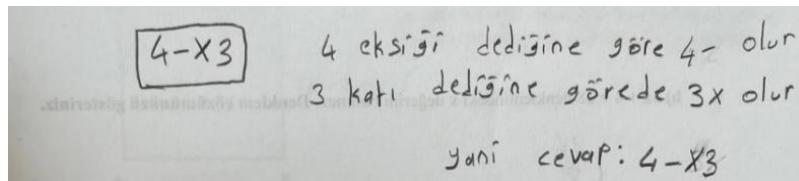 4-x3
4 eksiği dediğine göre 4- olur
3 katı dediğine görede 3x olur
yani cevap: 4-x3